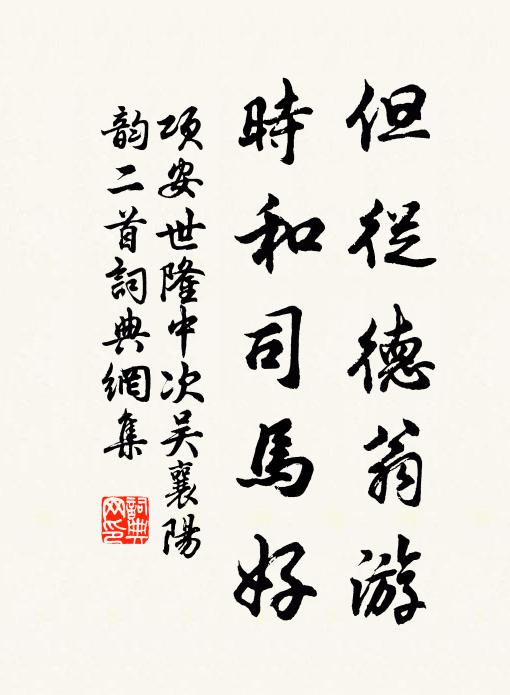 但從德翁游
時和司馬好
項安世隆中次吴襄陽
韵二首詞典網集
詞典網印